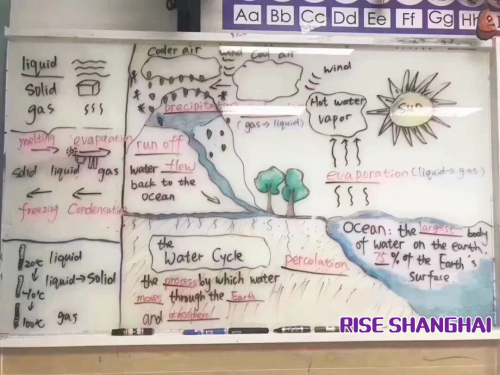 Aa Bb Cc Dd Ee Ff Gg Hh
liquid
solid
gas
melting evaporation
solid liquid gas
freezing Condensation
20°C liquid
liquid→solid
100°C gas
Cooler air
wind
Cool air
wind
Hot water
vapor
Sun
precipitat
(gas→liquid)
run off
water flow
back to the
ocean
evaporation (liquid→gas)
the
Water Cycle
the process by which water
moves through the Earth
and atmosphere!
percolation
Ocean: the largest body
of water on the earth
75% of the Earth's
surface
RISE SHANGHAI